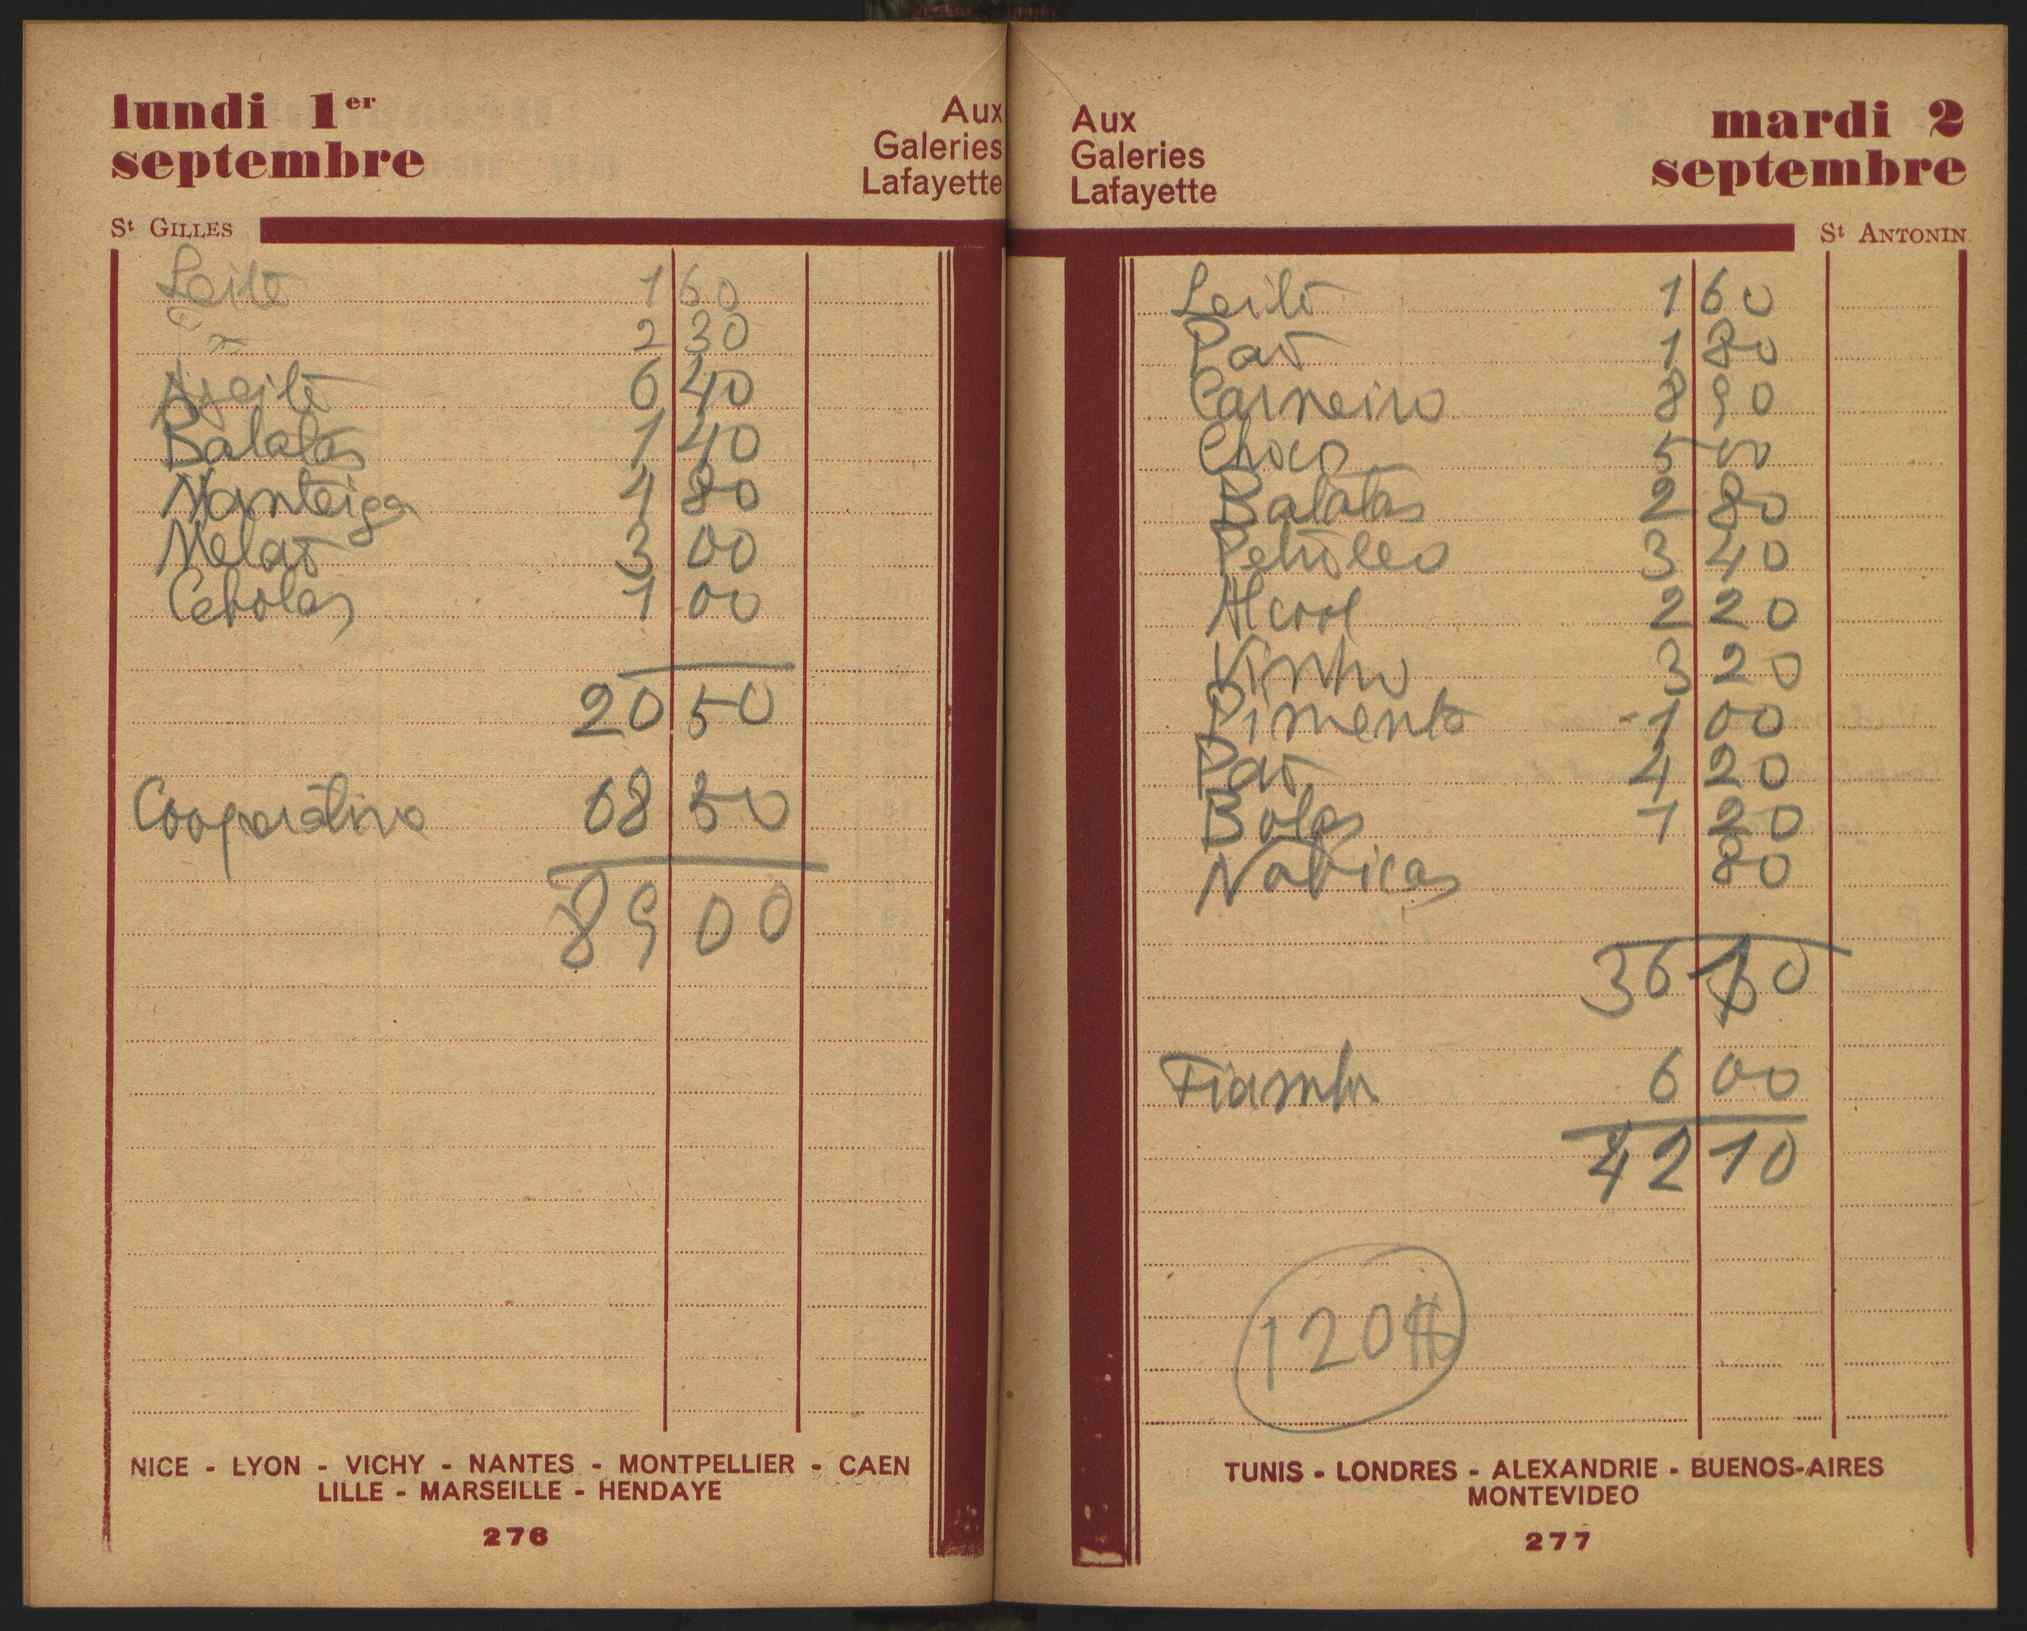 lundi 1er
septembre
Aux
Galeries
Lafayette
St GILLES
Leite 1 60
2 30
Azeite 6 40
Batatas 1 40
Manteiga 4 80
Melão 3 00
Cebolas 1 00
20 50
Cooperativa 68 50
89 00
NICE - LYON - VICHY - NANTES - MONTPELLIER - CAEN
LILLE - MARSEILLE - HENDAYE
276
Aux
Galeries
Lafayette
mardi 2
septembre
St ANTONIN
Leite 1 60
Pão 1 80
Carneiro 8 90
Choco 5 00
Batatas 2 80
Petróleo 3 40
Alcool 2 20
Vinho 3 20
Pimento 1 00
Pão 4 20
Bolos 1 20
Nabiças 80
36 10
Fiambre 6 00
42 10
120$
TUNIS - LONDRES - ALEXANDRIE - BUENOS-AIRES
MONTEVIDEO
277